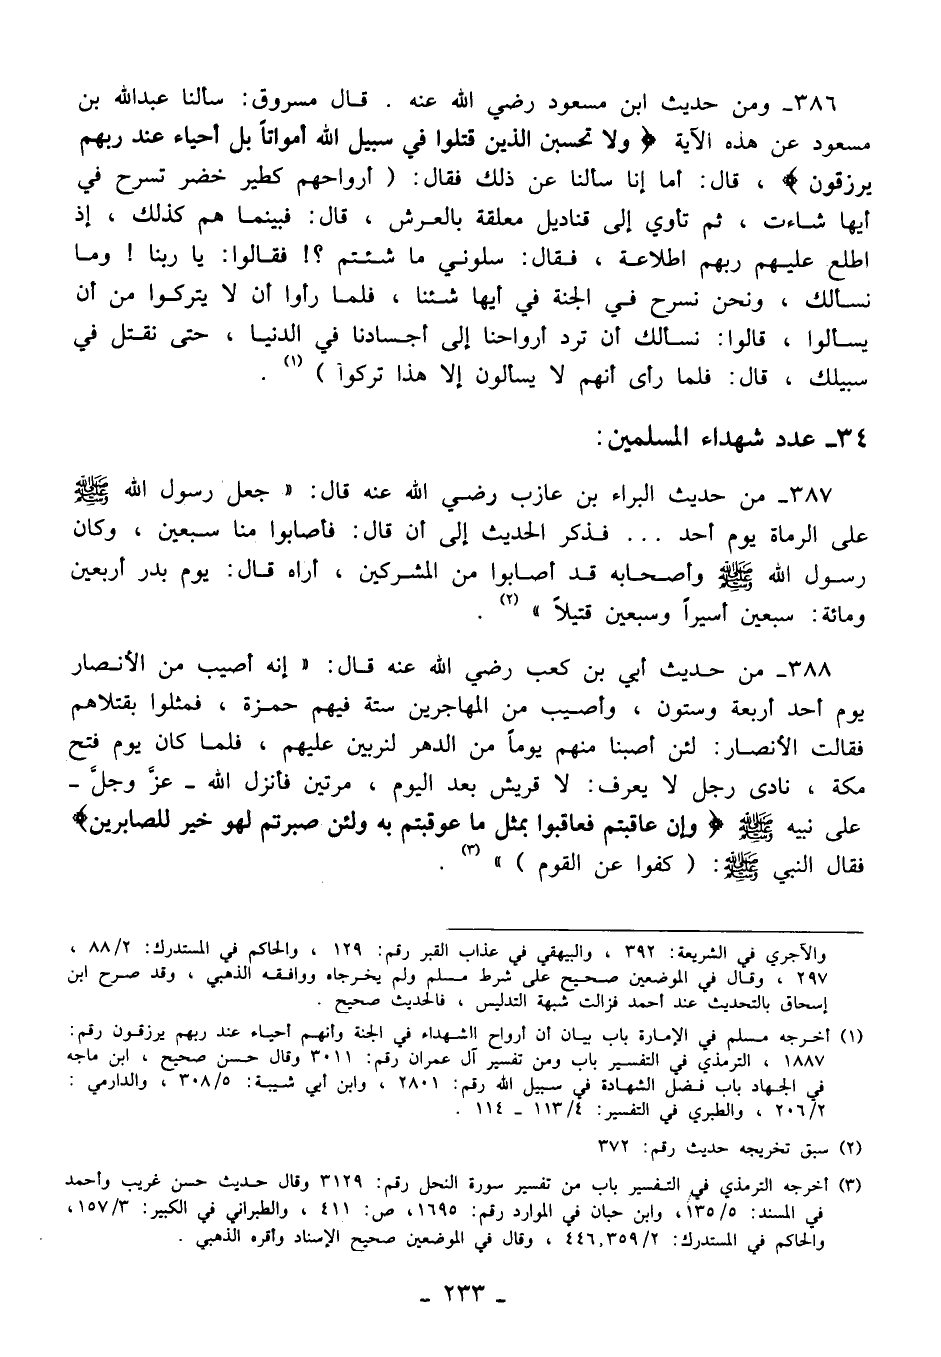 ٣٨٦ـ ومن حديث ابن مسعود رضي الله عنه . قال مسروق: سألنا عبدالله بن
مسعود عن هذه الآية ﴿ ولا تحسبن الذين قتلوا في سبيل الله أمواتاً بل أحياء عند ربهم
يرزقون ﴾ ، قال: أما إنا سألنا عن ذلك فقال: ( أرواحهم كطير خضر تسرح في
أيها شاءت ، ثم تأوي إلى قناديل معلقة بالعرش ، قال: فبينما هم كذلك ، إذ
اطلع عليهم ربهم اطلاعة ، فقال: سلوني ما شئتم ؟! فقالوا: يا ربنا ! وما
نسألك ، ونحن نسرح في الجنة في أيها شئنا ، فلما رأوا أن لا يتركوا من أن
يسألوا ، قالوا: نسألك أن ترد أرواحنا إلى أجسادنا في الدنيا ، حتى نقتل في
سبيلك ، قال: فلما رأى أنهم لا يسألون إلا هذا تركوا ) (١) .
٣٤ـ عدد شهداء المسلمين:
٣٨٧ـ من حديث البراء بن عازب رضي الله عنه قال: « جعل رسول الله ﷺ
على الرماة يوم أحد ... فذكر الحديث إلى أن قال: فأصابوا منا سبعين ، وكان
رسول الله ﷺ وأصحابه قد أصابوا من المشركين ، أراه قال: يوم بدر أربعين
ومائة: سبعين أسيراً وسبعين قتيلاً » (٢) .
٣٨٨ـ من حديث أبي بن كعب رضي الله عنه قال: « إنه أصيب من الأنصار
يوم أحد أربعة وستون ، وأصيب من المهاجرين ستة فيهم حمزة ، فمثلوا بقتلاهم
فقالت الأنصار: لئن أصبنا منهم يوماً من الدهر لنربين عليهم ، فلما كان يوم فتح
مكة ، نادى رجل لا يعرف: لا قريش بعد اليوم ، مرتين فأنزل الله ـ عزَّ وجلَّ ـ
على نبيه ﷺ ﴿ وإن عاقبتم فعاقبوا بمثل ما عوقبتم به ولئن صبرتم لهو خير للصابرين﴾
فقال النبي ﷺ: ( كفوا عن القوم ) » (٣) .
والآجري في الشريعة: ٣٩٢ ، والبيهقي في عذاب القبر رقم: ١٢٩ ، والحاكم في المستدرك: ٨٨/٢ ،
٢٩٧ ، وقال في الموضعين صحيح على شرط مسلم ولم يخرجاه ووافقه الذهبي ، وقد صرح ابن
إسحاق بالتحديث عند أحمد فزالت شبهة التدليس ، فالحديث صحيح .
(١) أخرجه مسلم في الإمارة باب بيان أن أرواح الشهداء في الجنة وأنهم أحياء عند ربهم يرزقون رقم:
١٨٨٧ ، الترمذي في التفسير باب ومن تفسير آل عمران رقم: ٣٠١١ وقال حسن صحيح ، ابن ماجه
في الجهاد باب فضل الشهادة في سبيل الله رقم: ٢٨٠١ ، وابن أبي شيبة: ٣٠٨/٥ ، والدارمي :
٢٠٦/٢ ، والطبري في التفسير: ١١٣/٤ ـ ١١٤ .
(٢) سبق تخريجه حديث رقم: ٣٧٢
(٣) أخرجه الترمذي في التفسير باب من تفسير سورة النحل رقم: ٣١٢٩ وقال حديث حسن غريب وأحمد
في المسند: ١٣٥/٥، وابن حبان في الموارد رقم: ١٦٩٥، ص: ٤١١ ، والطبراني في الكبير: ١٥٧/٣،
والحاكم في المستدرك: ٤٤٦,٣٥٩/٢ ، وقال في الموضعين صحيح الإسناد وأقره الذهبي .
ـ ٢٣٣ ـ